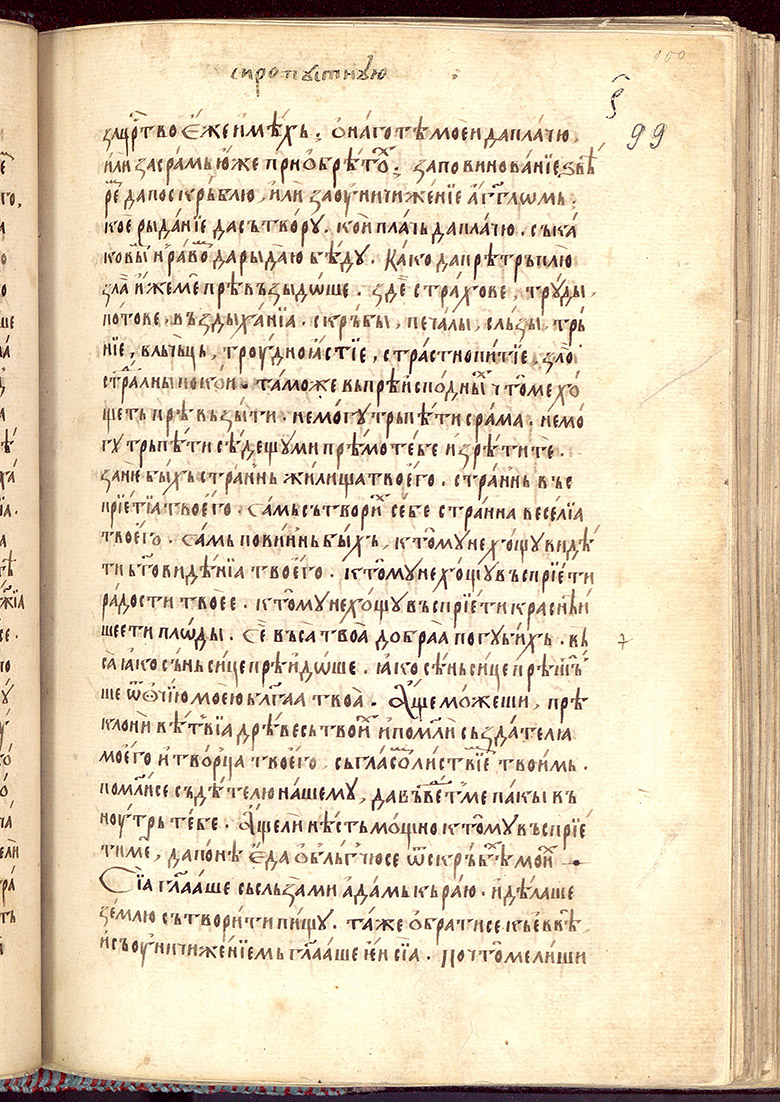 сиропустнꙋю
100
ч҃
99
зацр҃тво є҆же и҆мѣ́хь · ѻ҆ наготѣ мое́и да пла́чю
и҆ли за сра́мь ю҆же прио҆брѣ́тоⷯ · за повинова́нїе ѕвѣ́
реⷨ да поскрь́блю и҆ли за ѹ҆ничиже́нїе а҆́гг҃лѡмь ·
кое рыда́нїе да сьтво́рꙋ . ко́и пла́чь да пла́чю . сь ка
ковы́мь и҆ ра́воⷨ да рыда́ю бѣ́дꙋ . Ка́ко да прѣтрь́плю
зла́а и҆́же ме прѣвъзыдо́ше . зде́ стра́хове , трꙋды ,
по́тове . въздыха́нїа . скрь́бы , печа́лы , сль́зы , трь́
нїе , вль́чьць , трѹ́дно ꙗ҆стїе , стра́стно питїе , зло
стра́лны поко́и . та́може вь прѣиспо́дныⷯ что́ ме хо́
щеть прѣвъзы́ти . не мо́гꙋ трьпѣ́ти сра́ма . не мо́
гꙋ трьпѣ́ти сѣде́щꙋ ми прѣ́мо те́бе и҆ зрѣ́ти те .
зане́ бы́хь стра́ннь жили́ща твое́го . стра́ннь въс
прїе́тїа твое́го . Са́мь сьтвори́ⷯ се́бе стра́нна весе́лїа
твое́го . Са́мь пови́ннь бы́хь , к томꙋ не хо́щꙋ ви́дѣ
ти бг҃ови́дѣнїа твое́го . к томꙋ не хо́щꙋ въсприе́ти
ра́дости твоее . к томꙋ не хо́щꙋ въсприе́ти краснѣ́и
шее ти пло́ды . Се́ въса твоа́ до́браа погꙋби́хь . вь
са́ ꙗ҆́ко сь́нь си́це прѣидо́ше . ꙗ҆́ко сѣ́нь си́це прѣ
ше ѿ ѻ҆чїю мое́ю бл҃га́а твоа́ . А҆́ще мо́жеши , прѣ
кло́ни вѣ́твїа дрѣве́сь твоиⷯ и҆ помоли създа́телꙗ
мое́го и҆ тво́рца твое́го , сь гла́соⷨ ли́ствїе тво́имь .
помоли се съдѣ́телю на́шемꙋ , да въведеть ме па́кы въ
нѹ́трь те́бе . А҆́ще ли нѣ́сть мо́щно к томꙋ въсприе́
ти ме , да поне́ є҆да ѻ҆бльгчю се ѿ скрь́беⷯ моиⷯ
Сїа гл҃а́аше сь сльза́ми а҆да́мь кь ра́ю . и҆ дѣ́лаше
зе́млю сьтвори́ти пи́щꙋ . та́же ѻ҆брати се къ е́ввѣ ,
и҆ сь ѹ҆ничиже́нїемь гл҃а́аше ѥ҆и сїа . По что́ ме лиши